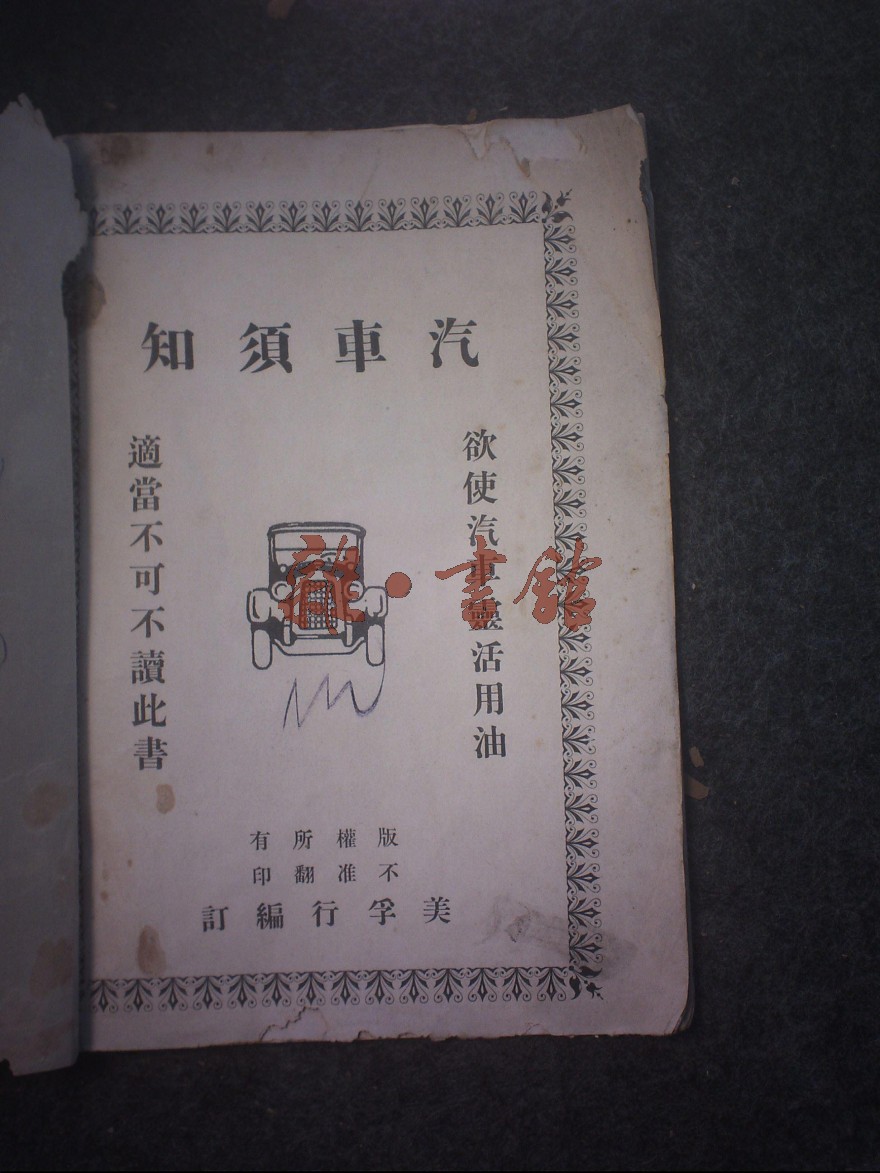 汽車須知
欲使汽車靈活用油
適當不可不讀此書
版權所有
不准翻印
美孚行編訂
龍·書館